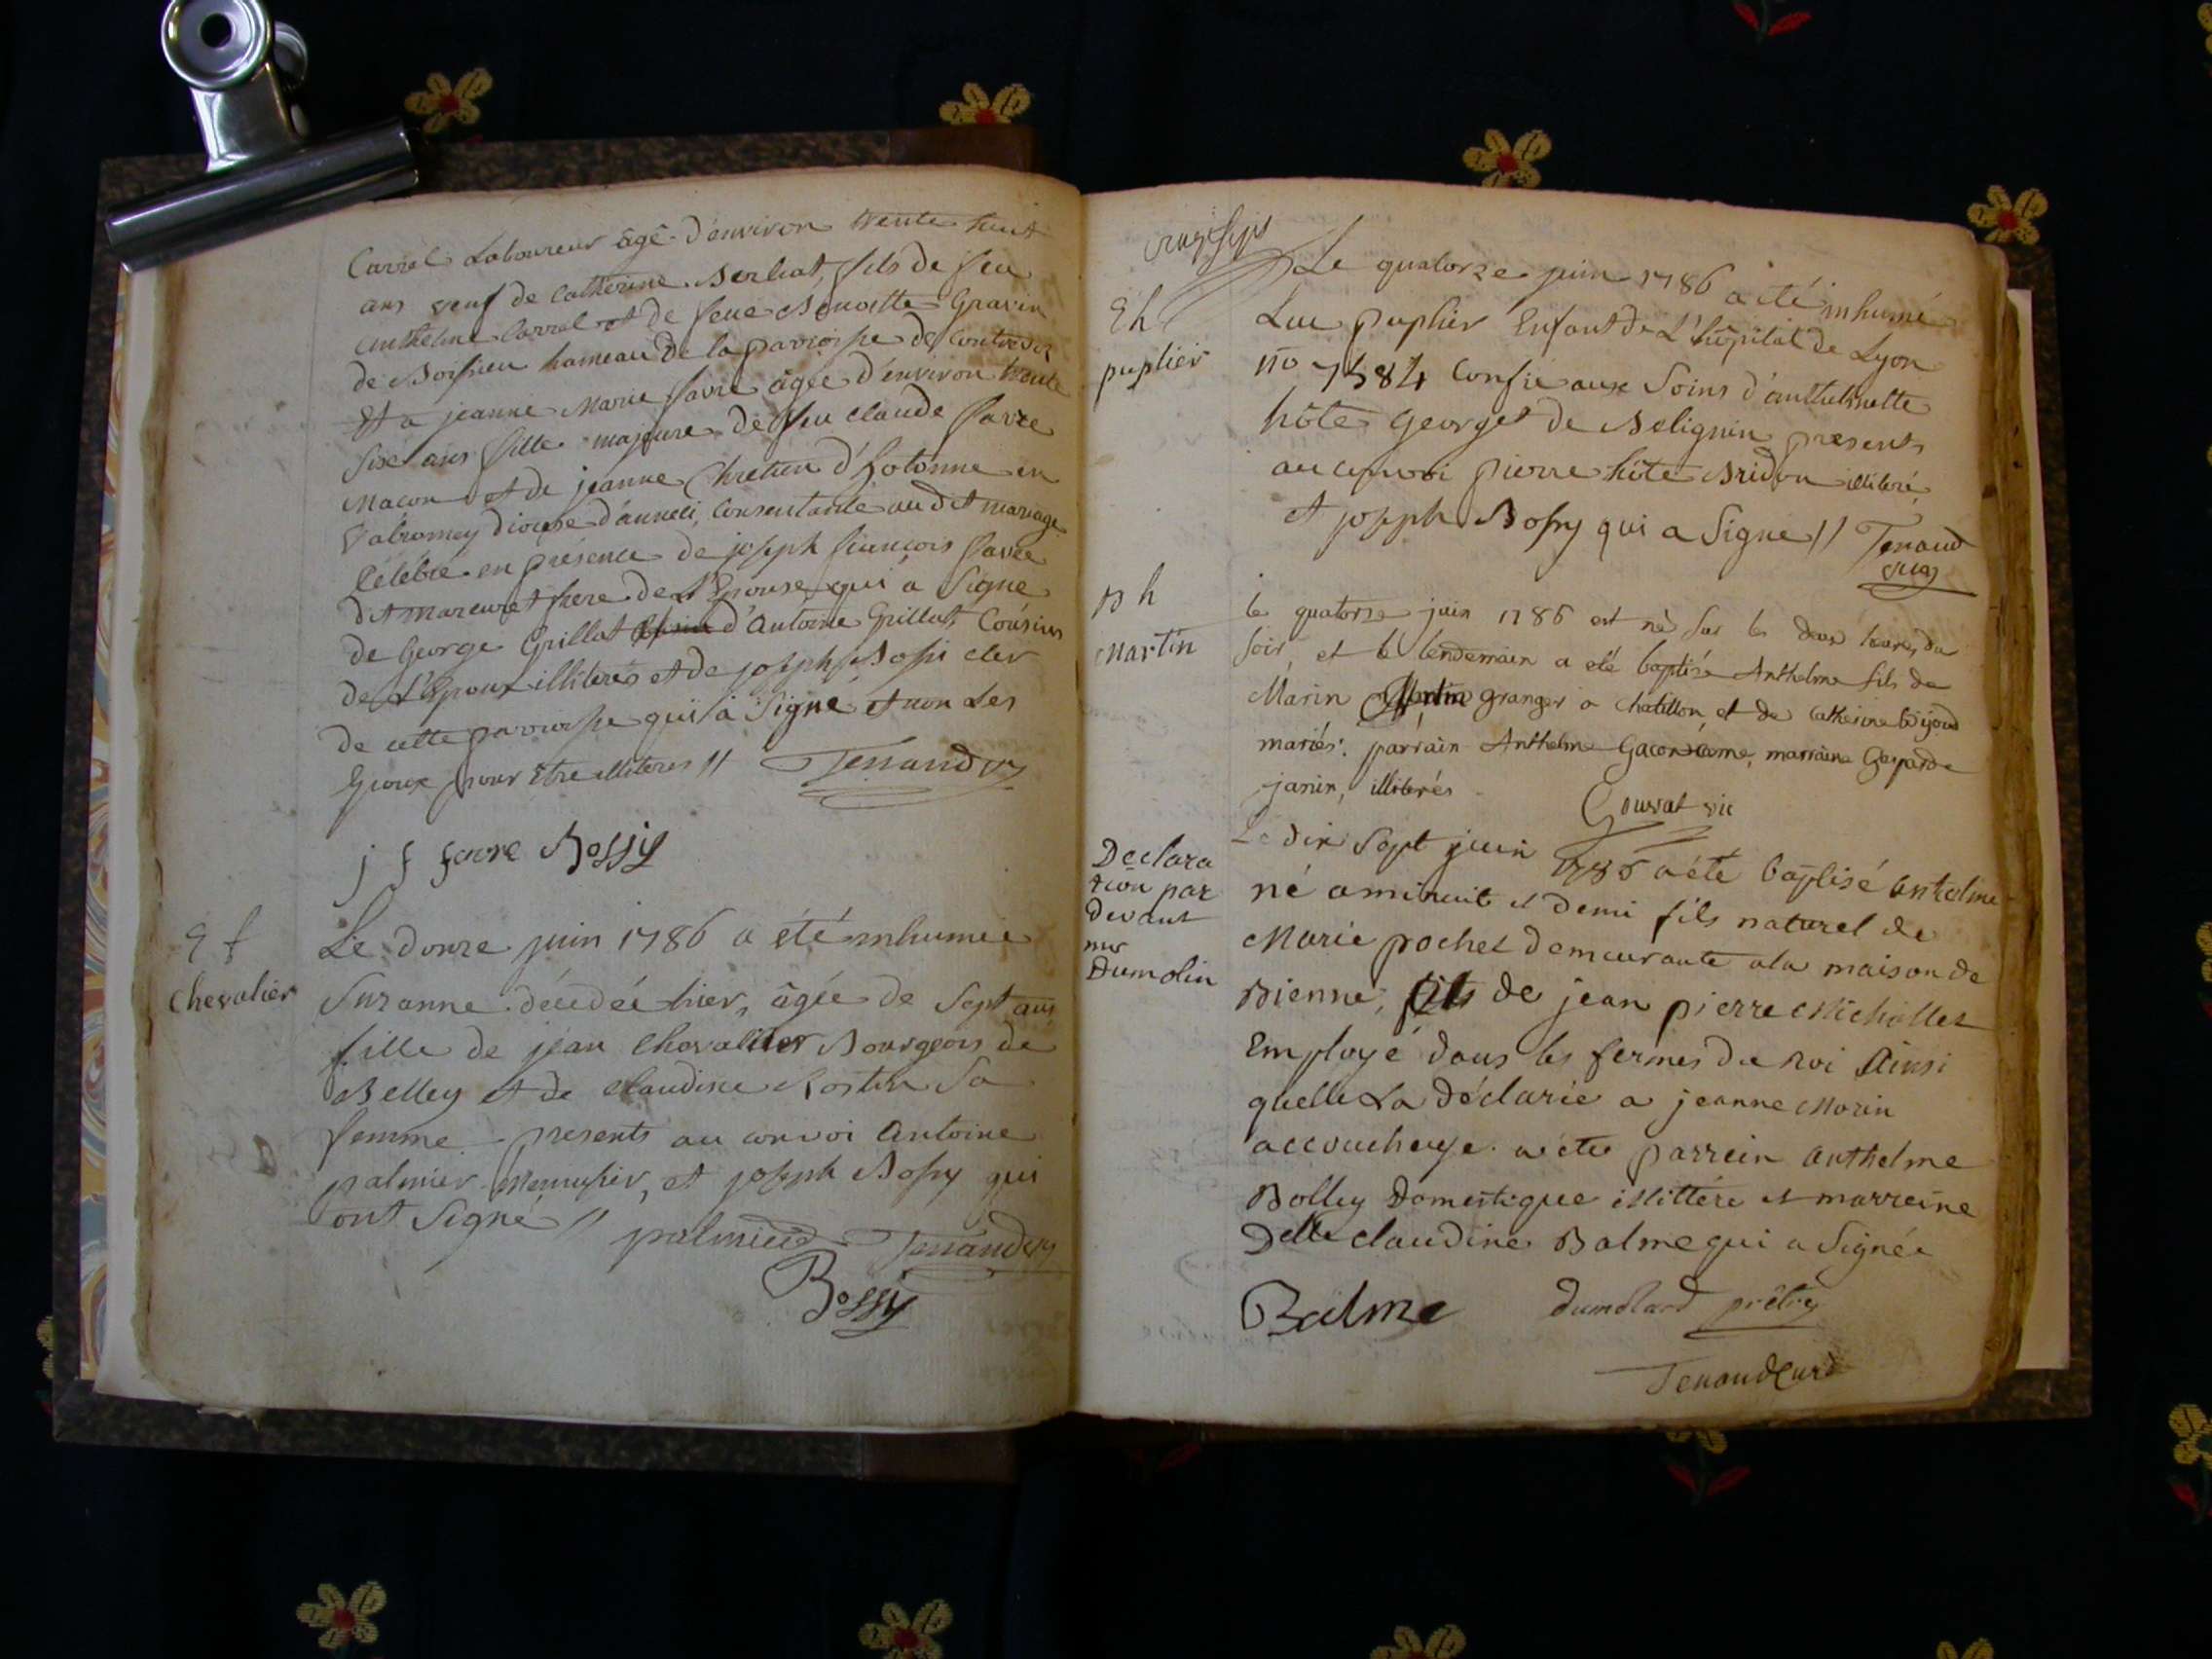 Carrel Laboureur âgé d'environ trente huit
ans veuf de Catherine Berliat, fils de feu
anthelme Carrel et de feue Benoitte Gravin
de Boissieu hameau de la parroisse de Contrevoz
Et a jeanne Marie favre âgée d'environ trente
Six ans fille majeure de feu Claude favre
Macon et de jeanne Chretien d'hotonne en
Valromey diocese d'anneci, Consentante au dit mariage
Célébré en présence de joseph francois favre
dit Marcuret frere de L'Epouse qui a Signé
de George Grillat d'Antoine Grillat Cousins
de L'Epoux illiterés et de joseph Bossi clerc
de cette parroisse qui a Signé et non Les
Epoux pour être illiteres // Tenand
j f favre Bossy
E f
Chevalier
Le douze juin 1786 a été inhumée
Suzanne décédée hier, âgée de Sept ans
fille de jean Chevalier Bourgeois de
Belley et de Claudine Rostin Sa
femme. presents au convoi Antoine
palmier Menusier, et joseph Bossy qui
ont Signé // palmier Tenand
Bossy
Eh
puplier
Le quatorze juin 1786 a été inhumé
Luc puplier Enfant de L'hôpital de Lyon
no 7584 Confié aux Soins d'anthelmette
hôte Georget de Bolignin presents
au convoi pierre hôte Bridon illiteré
et joseph Bossy qui a Signé // Tenand
curé
B h
Martin
le quatorze juin 1786 est né sur les deux heures du
soir, et le lendemain a été baptisé Anthelme fils de
Marin Martin granger a Chatillon, et de Catherine Bijoud
mariés: parrain Anthelme Gacon marraine Gasparde
janin, illiterés
Gouvat vic
Declara
tion par
devant
mr
Dumolin
Le dix Sept juin 1786 a été baptisé Anthelme
né a minuit et demi fils naturel de
Marie pochet demeurante a la maison de
Bienne, fils de jean pierre Michallet
Employé dans les fermes du Roi Ainsi
quelle La déclarée a jeanne Morin
accoucheuse. a été parrein Anthelme
Bolley Domestique illittéré et marreine
Delle Claudine Balme qui a Signée
Balme dumolard prêtre
Tenand Curé